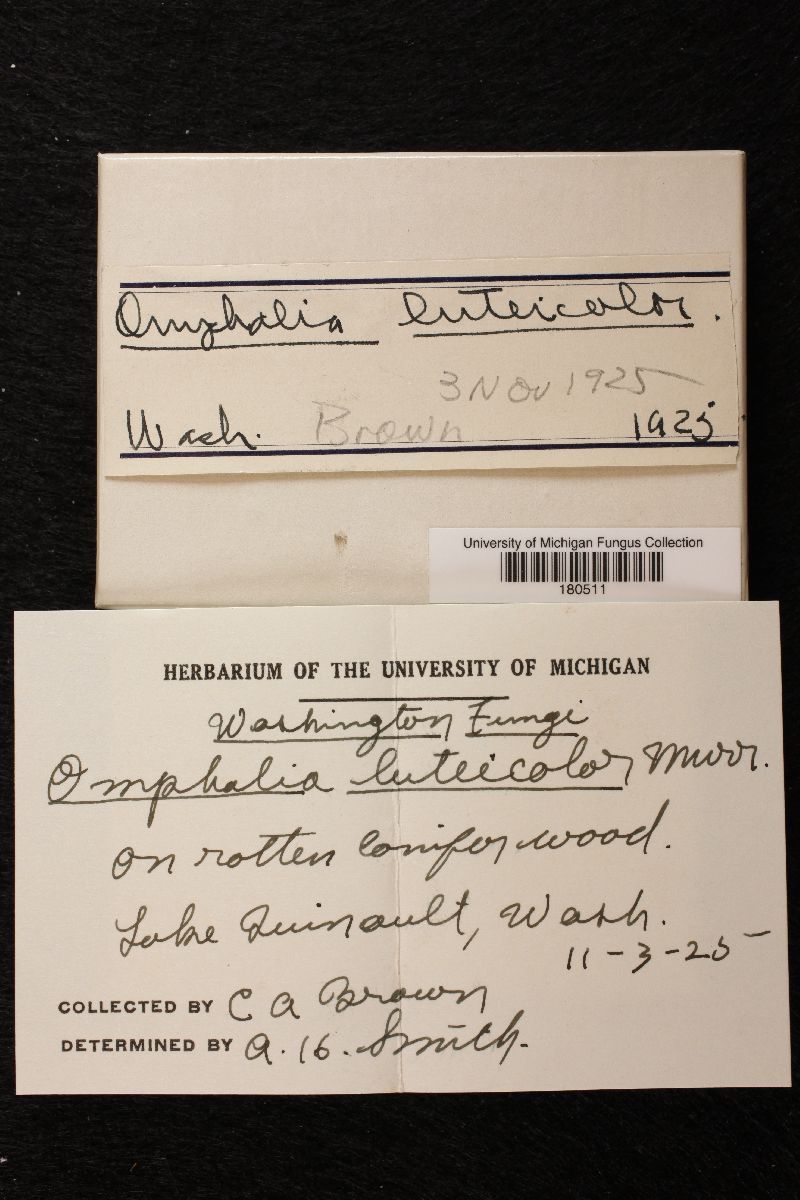 Omphalia luteicolor.
3 Nov 1925
Wash. Brown 1925
University of Michigan Fungus Collection
180511
HERBARIUM OF THE UNIVERSITY OF MICHIGAN
Washington Fungi
Omphalia luteicolor Murr.
on rotten conifer wood.
Lake Quinault, Wash.
11-3-25
COLLECTED BY C A Brown
DETERMINED BY A. H. Smith.